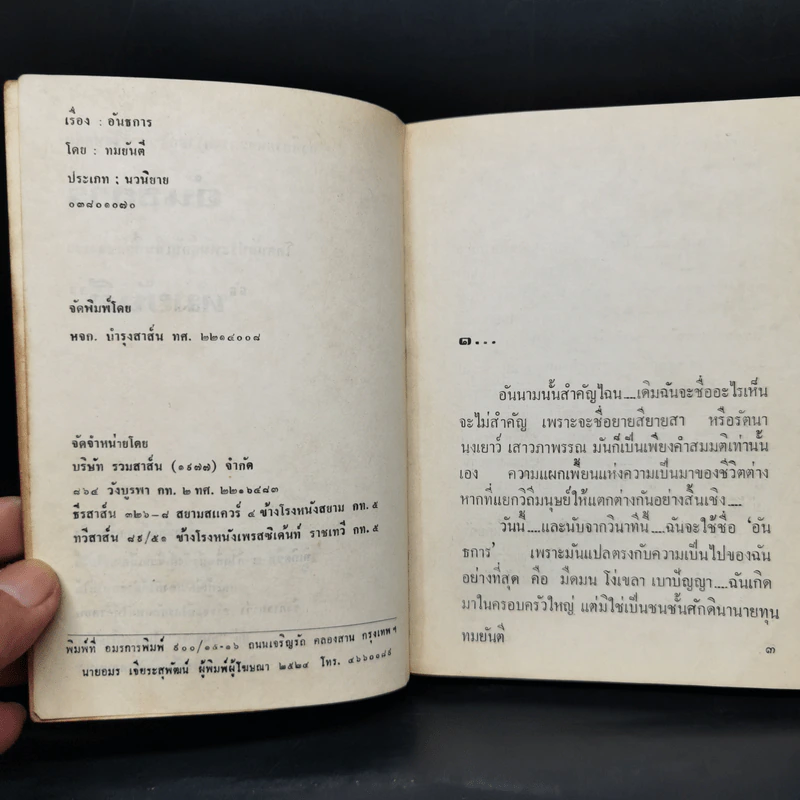 เรื่อง : อันธการ
โดย : ทมยันตี
ประเภท ; นวนิยาย
๐๓๘๐๑๐๗๐
จัดพิมพ์โดย
หจก. บำรุงสาส์น ทศ. ๒๒๑๔๐๐๘
จัดจำหน่ายโดย
บริษัท รวมสาส์น (๑๙๗๗) จำกัด
๘๖๔ วังบูรพา กท. ๒ ทศ. ๒๒๑๖๔๘๓
ธีรสาส์น ๓๒๖-๘ สยามสแควร์ ๔ ข้างโรงหนังสยาม กท. ๕
ทวีสาส์น ๘๙/๕๑ ข้างโรงหนังเพรสซิเด้นท์ ราชเทวี กท. ๕
พิมพ์ที่ อมรการพิมพ์ ๙๐๐/๑๕-๑๖ ถนนเจริญรัถ คลองสาน กรุงเทพ ฯ
นายอมร เจียระสุพัฒน์ ผู้พิมพ์ผู้โฆษณา ๒๕๒๔ โทร. ๔๖๖๐๑๘๙
๑...
อันนามนั้นสำคัญไฉน....เดิมฉันจะชื่ออะไรเห็น
จะไม่สำคัญ เพราะจะชื่อยายสียายสา หรือรัตนา
นงเยาว์ เสาวภาพรรณ มันก็เป็นเพียงคำสมมติเท่านั้น
เอง ความแผกเพี้ยนแห่งความเป็นมาของชีวิตต่าง
หากที่แยกวิถีมนุษย์ให้แตกต่างกันอย่างสิ้นเชิง....
วันนี้....และนับจากวินาทีนี้....ฉันจะใช้ชื่อ 'อัน
ธการ' เพราะมันแปลตรงกับความเป็นไปของฉัน
อย่างที่สุด คือ มืดมน โง่เขลา เบาปัญญา....ฉันเกิด
มาในครอบครัวใหญ่ แต่มิใช่เป็นชนชั้นศักดินานายทุน
ทมยันตี
๓